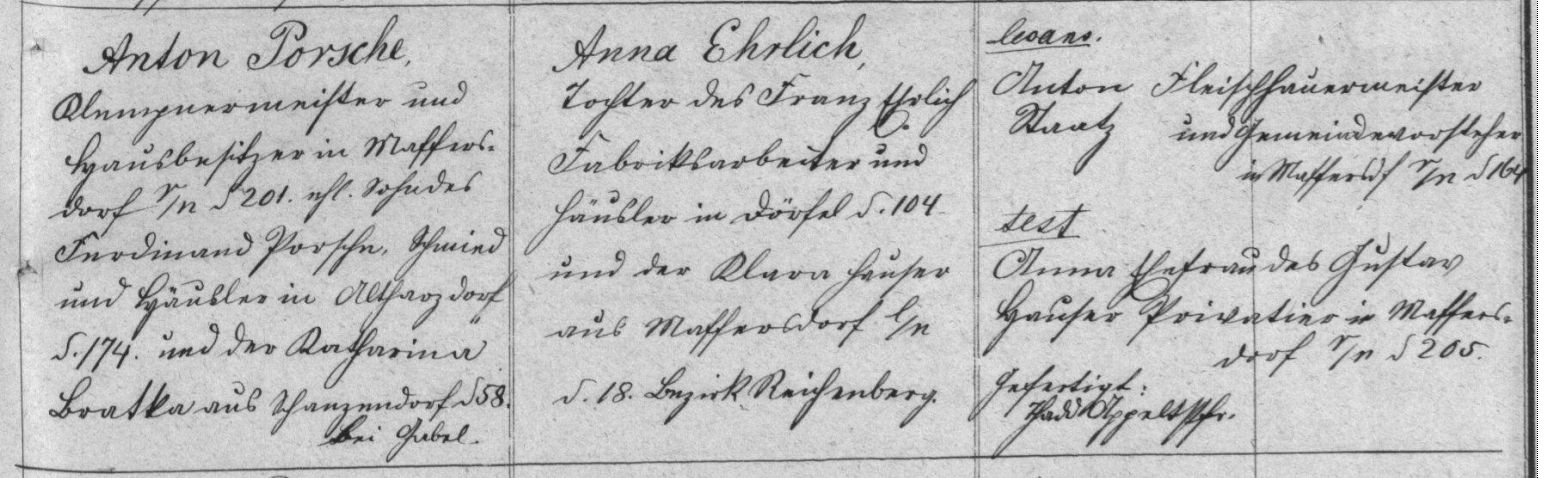 Anton Porsche,
Klempnermeister und
Hausbesitzer in Maffers-
dorf r/N d 201. ehl. Sohn des
Ferdinand Porsche, Schmied
und Häusler in Altharzdorf
d. 174. und der Katharina
Bratka aus Schanzendorf d 58.
bei Gabel.
Anna Ehrlich,
Tochter des Franz Ehrlich
Fabriksarbeiter und
Häusler in Dörfel d. 104
und der Klara Hauser
aus Maffersdorf l/N
d. 18. Bezirk Reichenberg.
Anton Fleischhauermeister
Staatz und Gemeindevorsteher
in Maffersdf r/N d 164
test
Anna Ehefrau des Gustav
Hauser Privatier in Maffers-
dorf r/N d 205.
Gefertigt:
Thadd Appelt Pfr.